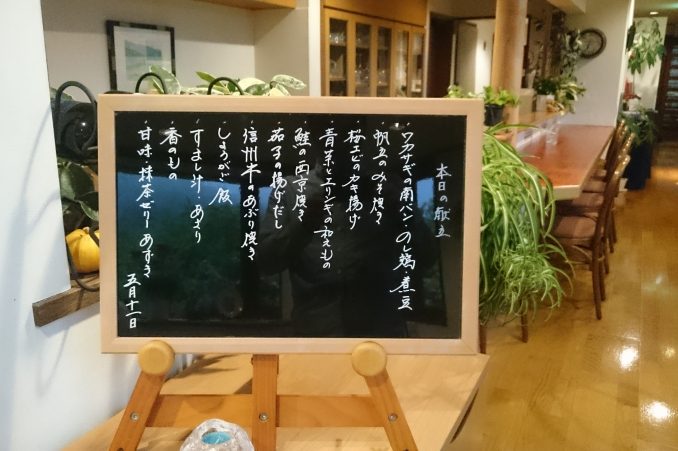 本日の献立
・ワカサギの南バン・のし鶏・煮豆
・帆立のみそ焼き
・桜エビのかき揚げ
・青菜とエリンギの和えもの
・鮭の西京焼き
・茄子の揚げだし
・信州牛のあぶり焼き
・しょうがご飯
・すまし汁・あさり
・香のもの
・甘味・抹茶ゼリーあずき
五月十一日